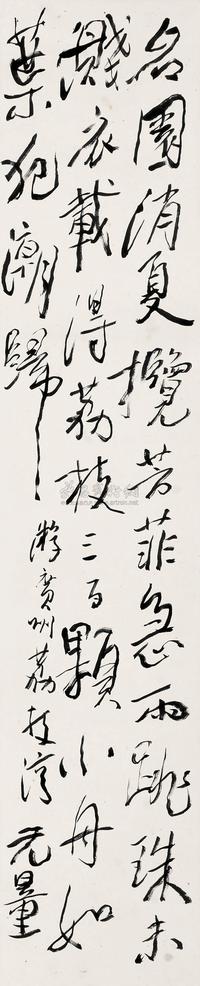 名園消夏攬芳菲急雨跳珠未
濺衣載得荔枝三百顆小舟如
葉犯潮歸
游廣州荔枝灣 元量